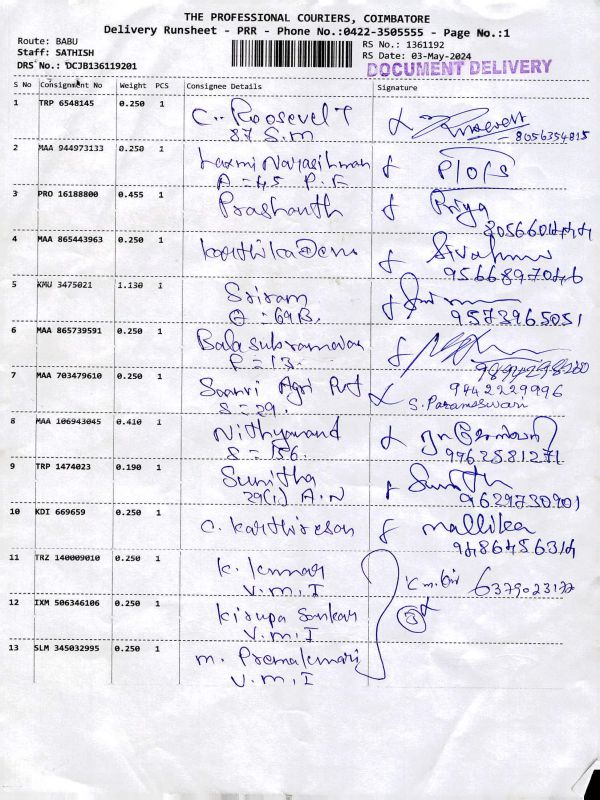 THE PROFESSIONAL COURIERS, COIMBATORE
Delivery Runsheet - PRR - Phone No.:0422-3505555 - Page No.:1
Route: BABU
Staff: SATHISH
DRS No.: DCJB136119201
RS No.: 1361192
RS Date: 03-May-2024
DOCUMENT DELIVERY
S No Consignment No Weight PCS Consignee Details Signature
1 TRP 6548145 0.250 1 C. Roosevelt
87 S.M 8056354815
2 MAA 944973133 0.250 1 Laxmi Narasihman
A = 45 P.F
3 PRO 16188800 0.455 1 Prashanth Priya
4 MAA 865443963 0.250 1 Karthika
9566897046
5 KMU 3475021 1.130 1 Sriram
= 69B. 9573965051
6 MAA 865739591 0.250 1 Balasubramanian
P = 13.
7 MAA 703479610 0.250 1 Saanvi Agri Pvt 9442229996
S = 29. S. Parameswari
8 MAA 106943045 0.410 1 Nithyanand
S = 156. 9962581271
9 TRP 1474023 0.190 1 Sunitha
29(1) A.N 9629730901
10 KDI 669659 0.250 1 C. Karthikesan Mallika
11 TRZ 140009010 0.250 1 K. Kumar
V.M.I
12 IXM 506346106 0.250 1 Kirupa Sankar
V.M.I
13 SLM 345032995 0.250 1 M. Premakumari
V.M.I